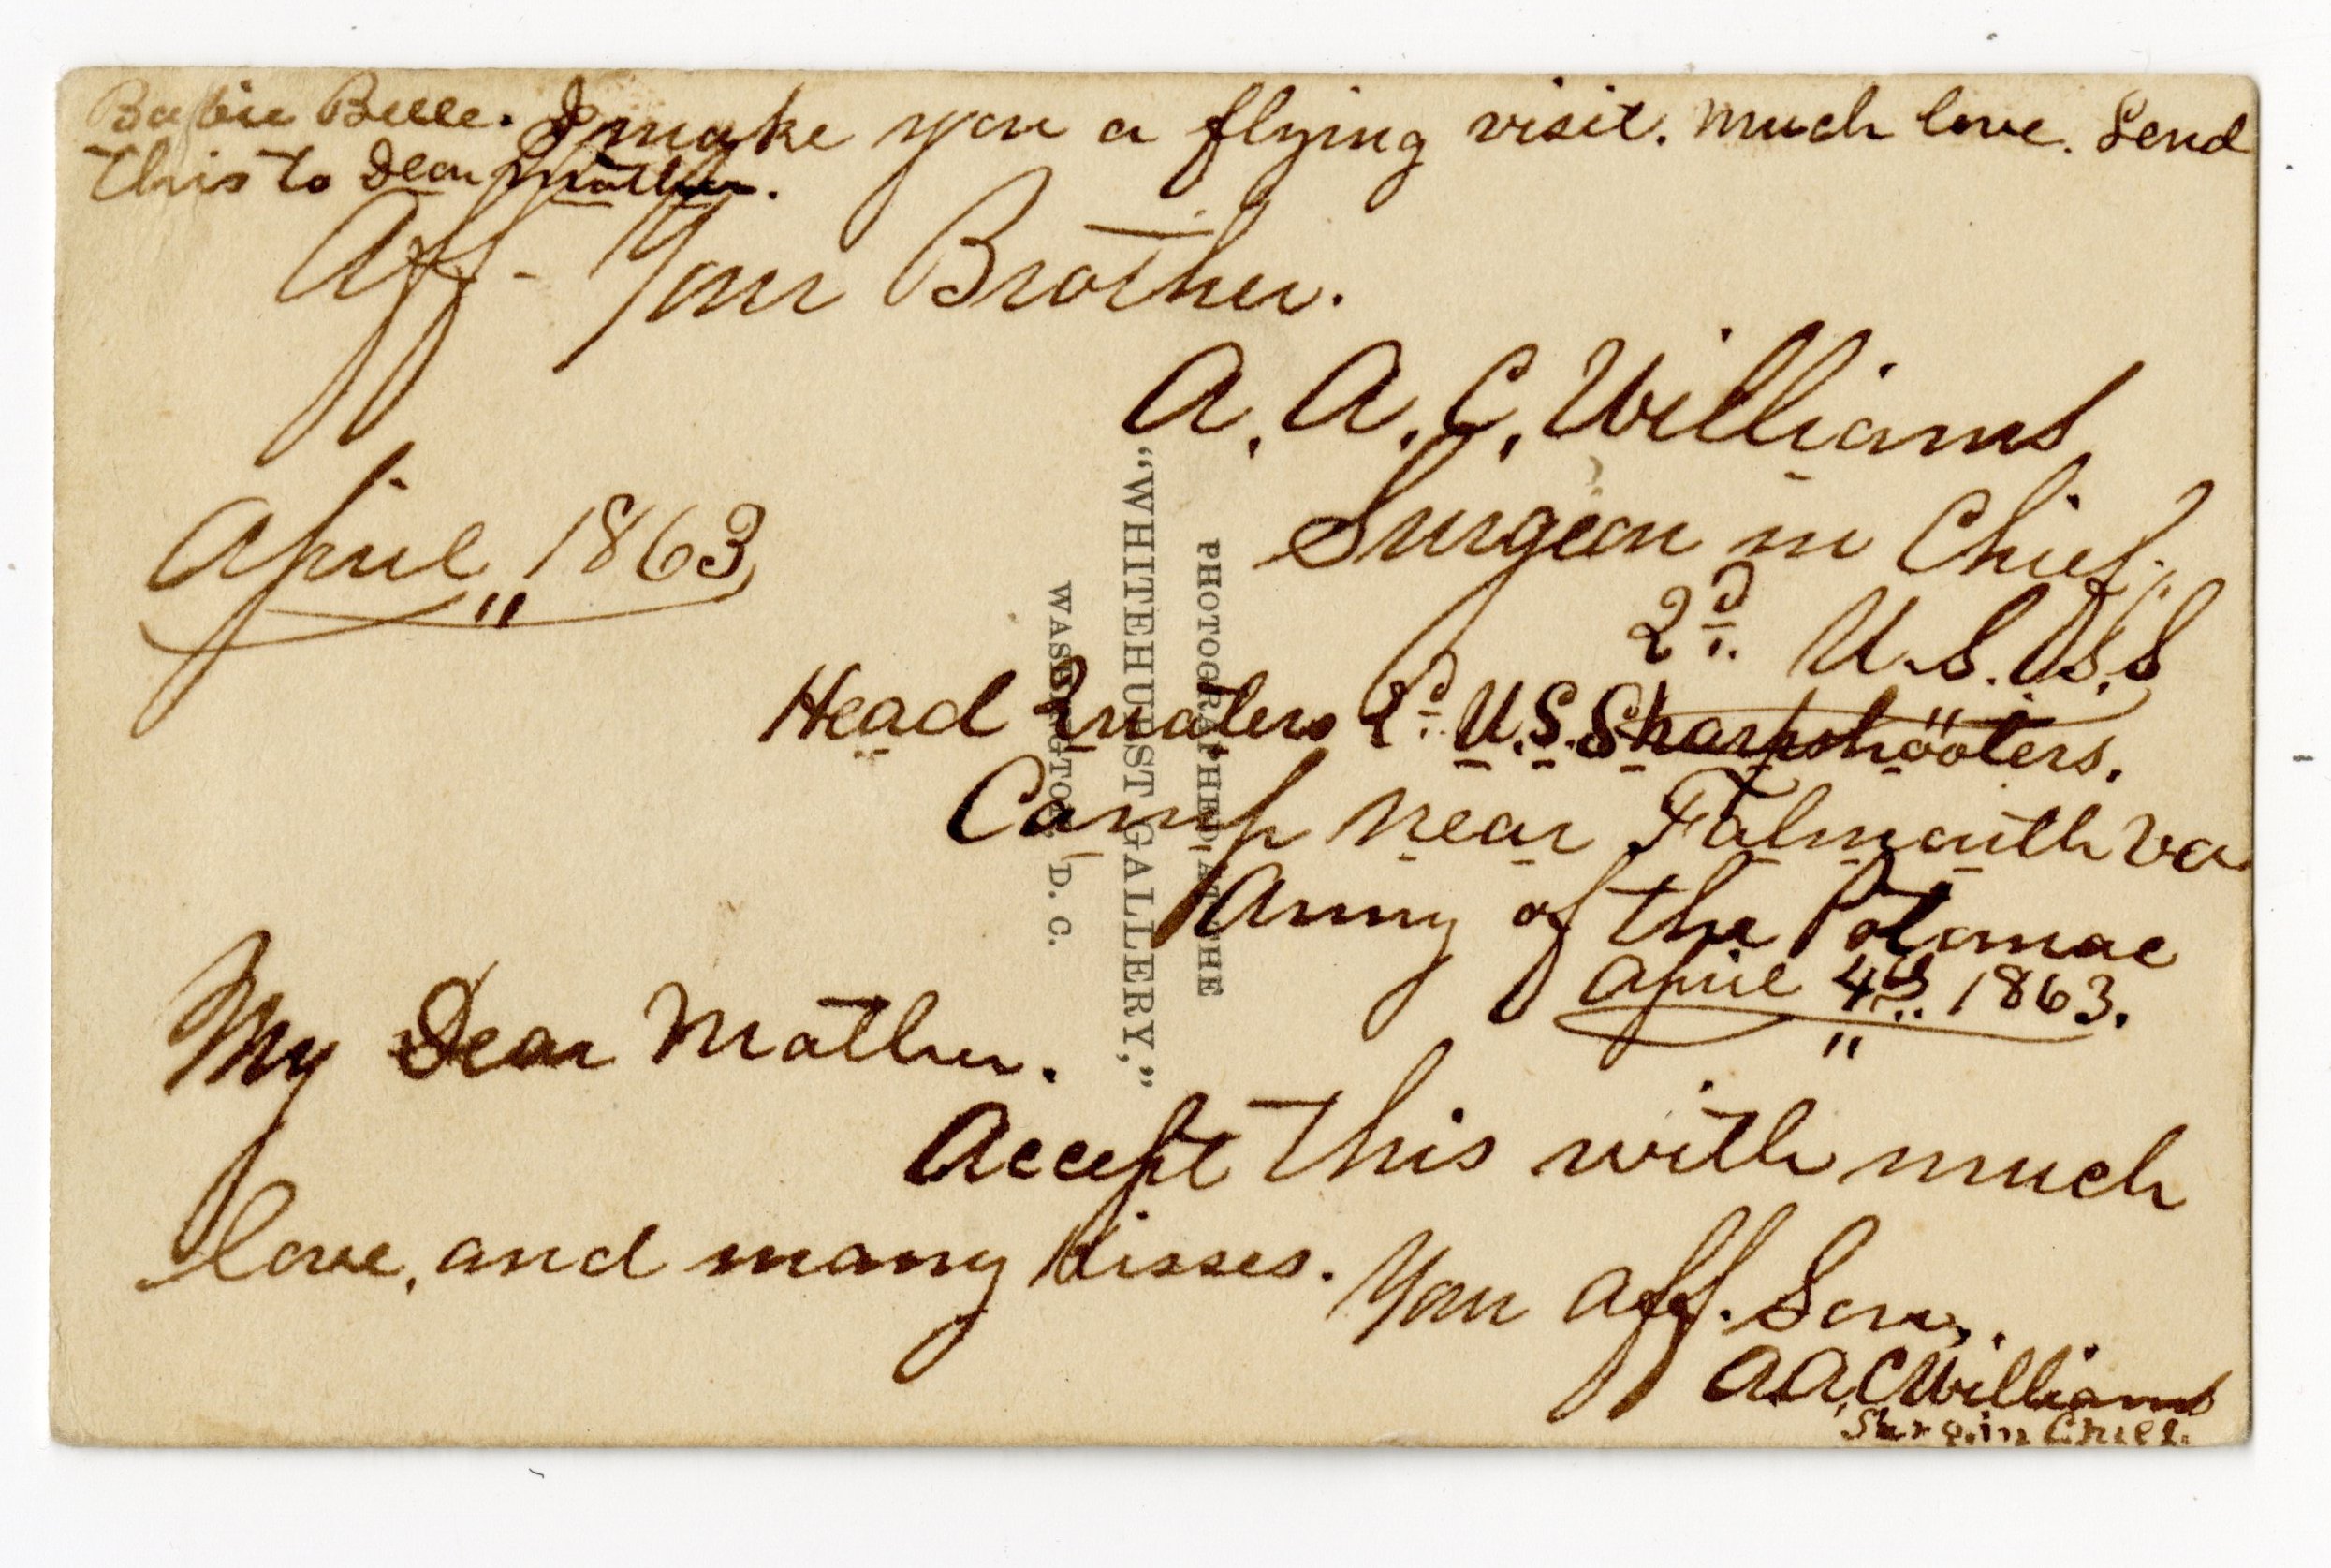 Babie Belle. I make you a flying visit. Much love. Send
This to Dear Mother.
Aff- Your Brother.
A. A. C. Williams
Surgeon in Chief.
April, 1863
2d U.S.S.S
Head Quaters 2d U.S. Sharpshooters.
Camp near Falmouth Va
Army of the Potomac
April 4th 1863.
My Dear Mother.
Accept This with much
love, and many kisses. Your aff. Son,
A A C Williams
Surg. in Chief.
PHOTOGRAPHED AT THE
"WHITEHURST GALLERY,"
WASHINGTON, D. C.